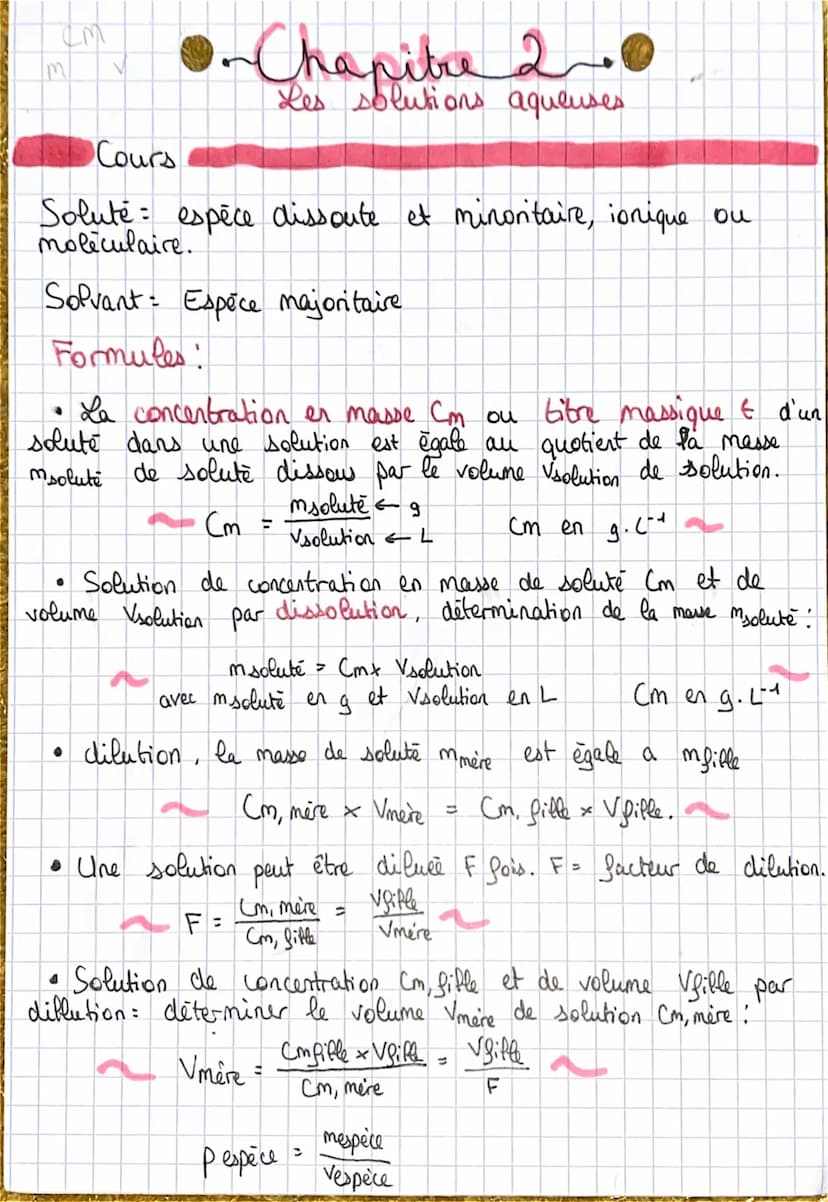 Cm
m v
Chapitre 2
Les solutions aqueuses
Cours
Soluté = espèce dissoute et minoritaire, ionique ou
moléculaire.
Solvant = Espèce majoritaire
Formules :
• La concentration en masse Cm ou titre massique t d'un
soluté dans une solution est égale au quotient de la masse
msoluté de soluté dissous par le volume Vsolution de solution.
Cm = msoluté ← g / Vsolution ← L Cm en g.L⁻¹
• Solution de concentration en masse de soluté Cm et de
volume Vsolution par dissolution, détermination de la masse msoluté :
msoluté = Cm x Vsolution
avec msoluté en g et Vsolution en L Cm en g.L⁻¹
• dilution, la masse de soluté mmère est égale a mfille
Cm, mère x Vmère = Cm, fille x Vfille.
• Une solution peut être diluée F fois. F = facteur de dilution.
F = Cm, mère / Cm, fille = Vfille / Vmère
• Solution de concentration Cm, fille et de volume Vfille par
diflution : déterminer le volume Vmère de solution Cm, mère :
Vmère = Cmfille x Vfille / Cm, mère = Vfille / F
ρ espèce = mespèce / Vespèce